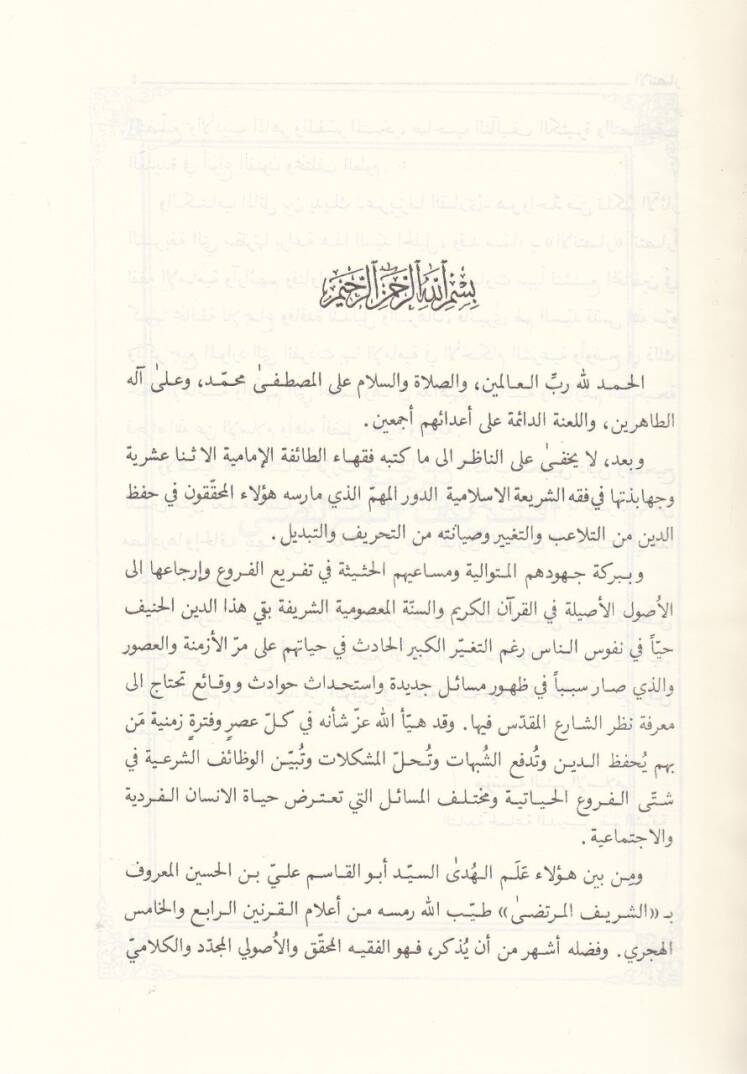 بِسْمِ ٱللَّهِ ٱلرَّحْمَٰنِ ٱلرَّحِيمِ
الحـمـد لله ربِّ العـالمين، والصلاة والسلام على المصطفـىٰ محمّـد، وعلىٰ آله
الطاهرين، واللعنة الدائمة على أعدائهم أجمعين.
وبعد، لا يخفـىٰ على الناظر الى ما كتبه فقهاء الطائفة الإمامية الاثنا عشرية
وجهابذتها في فقه الشريعة الاسلامية الدور المهمّ الذي مارسه هؤلاء المحقّقون في حفظ
الدين من التلاعب والتغيير وصيانته من التحريف والتبديل.
وبـبركة جـهودهم المتوالية ومساعيهم الحثيثة في تفـريع الفروع وإرجاعها الى
الاُصول الأصيلة في القرآن الكريم والسنّة المعصومية الشريفة بقي هذا الدين الحنيف
حيّاً في نفوس الناس رغم التغيّر الكبير الحادث في حياتهم على مرّ الأزمنة والعصور
والذي صار سبباً في ظهور مسائل جديدة واستحداث حوادث ووقائع تحتاج الى
معرفة نظر الشارع المقدّس فيها. وقد هيّأ الله عزّ شأنه في كلّ عصرٍ وفترةٍ زمنية مَن
بهم يُحفظ الدين وتُدفع الشُبهات وتُحلّ المشكلات وتُبيّن الوظائف الشرعية في
شتّى الفروع الحياتية ومختلف المسائل التي تعترض حياة الانسان الفردية
والاجتماعية.
ومِن بين هؤلاء عَلَم الهُدىٰ السيّد أبو القاسم عليّ بن الحسين المعروف
بـ «الشريف المرتضىٰ» طيّب الله رمسه من أعلام القرنين الرابع والخامس
الهجري. وفضله أشهر من أن يُذكر، فهو الفقيه المحقّق والاُصولي المجدّد والكلاميّ